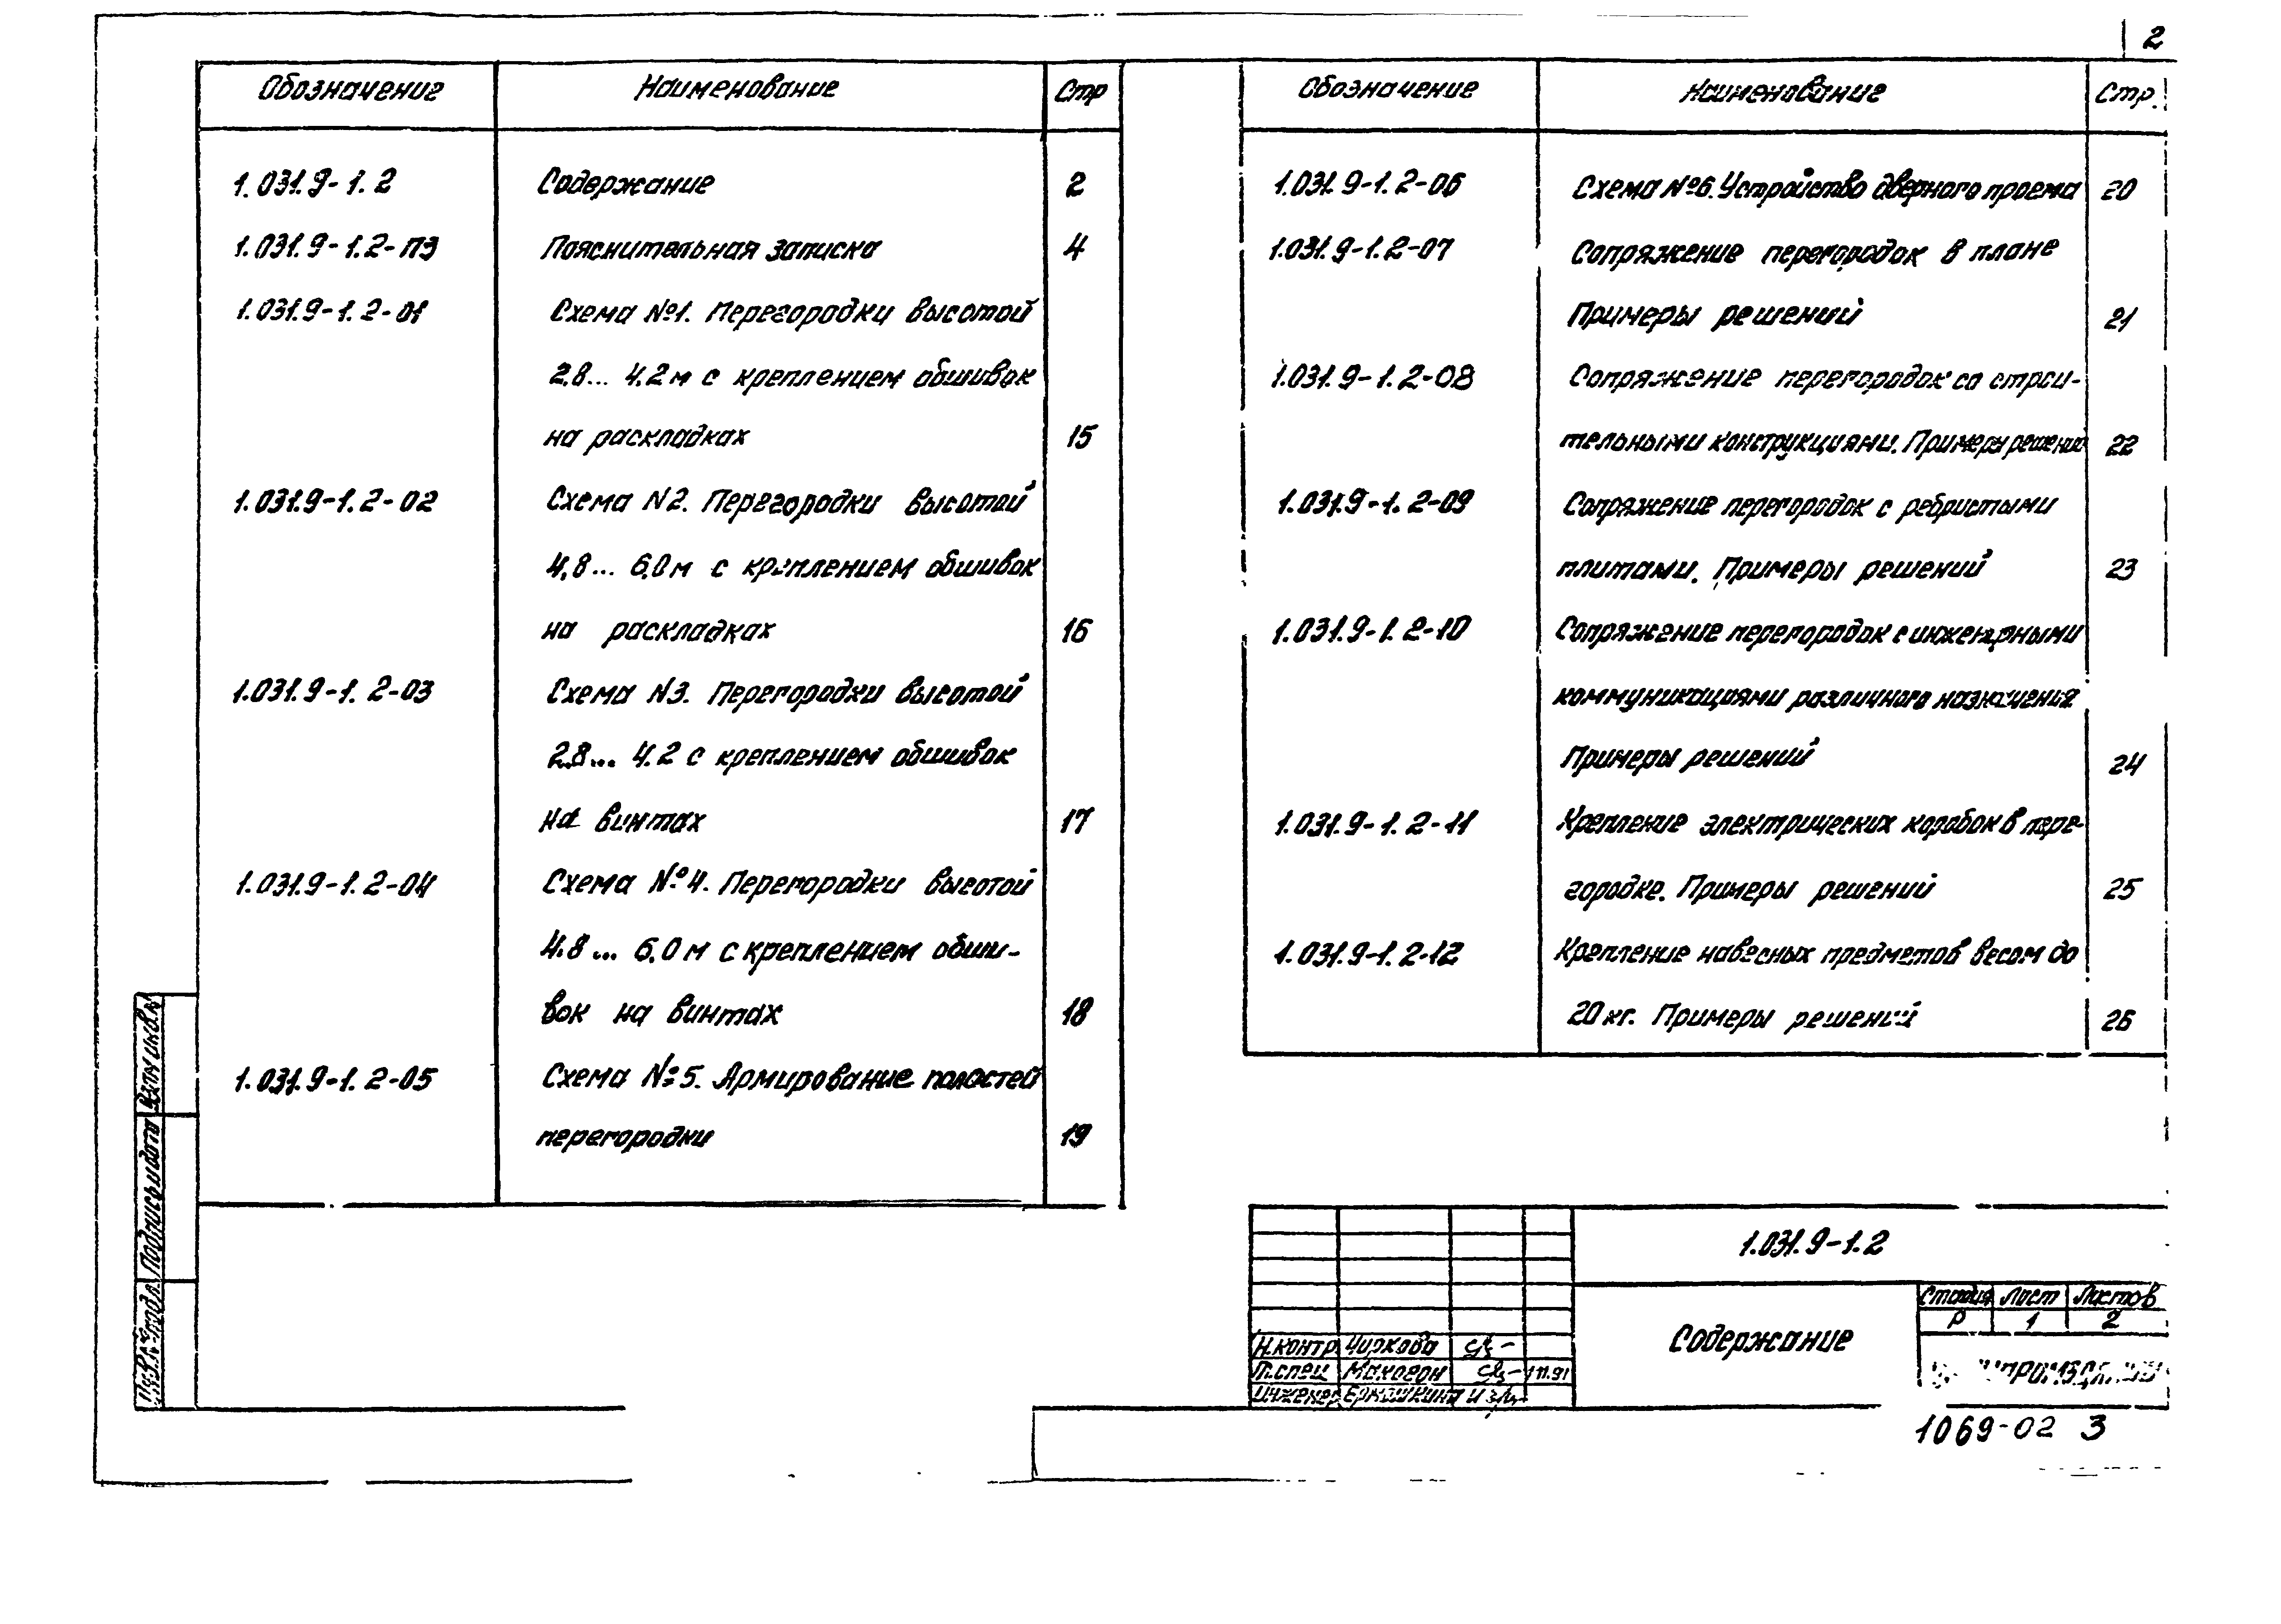 2
Обозначение Наименование Стр
1.031.9-1.2 Содержание 2
1.031.9-1.2-ПЗ Пояснительная записка 4
1.031.9-1.2-01 Схема №1. Перегородки высотой
2.8... 4.2м с креплением обшивок
на раскладках 15
1.031.9-1.2-02 Схема N2. Перегородки высотой
4,8... 6,0м с креплением обшивок
на раскладках 16
1.031.9-1.2-03 Схема N3. Перегородки высотой
2.8... 4.2 с креплением обшивок
на винтах 17
1.031.9-1.2-04 Схема №4. Перегородки высотой
4.8... 6,0м с креплением обши-
вок на винтах 18
1.031.9-1.2-05 Схема №5. Армирование полостей
перегородки 19
Обозначение Наименование Стр.
1.031.9-1.2-06 Схема №6. Устройство дверного проема 20
1.031.9-1.2-07 Сопряжение перегородок в плане
Примеры решений 21
1.031.9-1.2-08 Сопряжение перегородок со строи-
тельными конструкциями. Примеры решений 22
1.031.9-1.2-09 Сопряжение перегородок с ребристыми
плитами. Примеры решений 23
1.031.9-1.2-10 Сопряжение перегородок с инженерными
коммуникациями различного назначения
Примеры решений 24
1.031.9-1.2-11 Крепление электрических коробок в пере-
городке. Примеры решений 25
1.031.9-1.2-12 Крепление навесных предметов весом до
20 кг. Примеры решений 26
Взам инв.№
Подпись и дата
Инв.№ подл.
1.031.9-1.2
Содержание
Стадия Лист Листов
Р 1 2
Н.контр Чиркова
Гл.спец Макогон 11.91
Инженер Ермошкина
1069-02 3